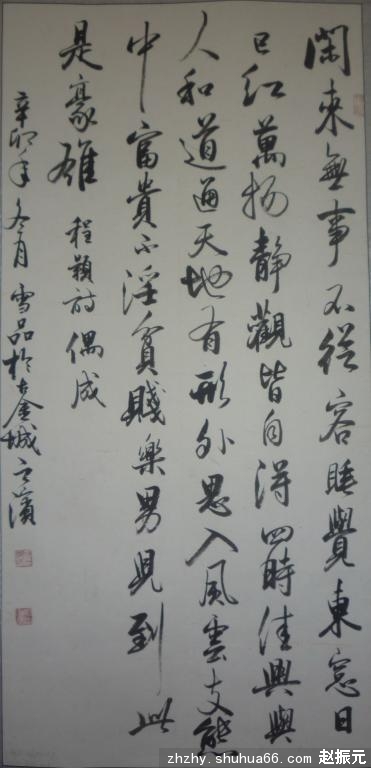 閑來無事不從容睡覺東窓日
已紅萬物靜觀皆自得四時佳興與
人和道通天地有形外思入風雲变態
中富貴不淫貧賤樂男兒到此
是豪雄 程颢詩偶成
辛卯年冬月雪品於古金城之濱
zhzhy.shuhua66.com 赵振元